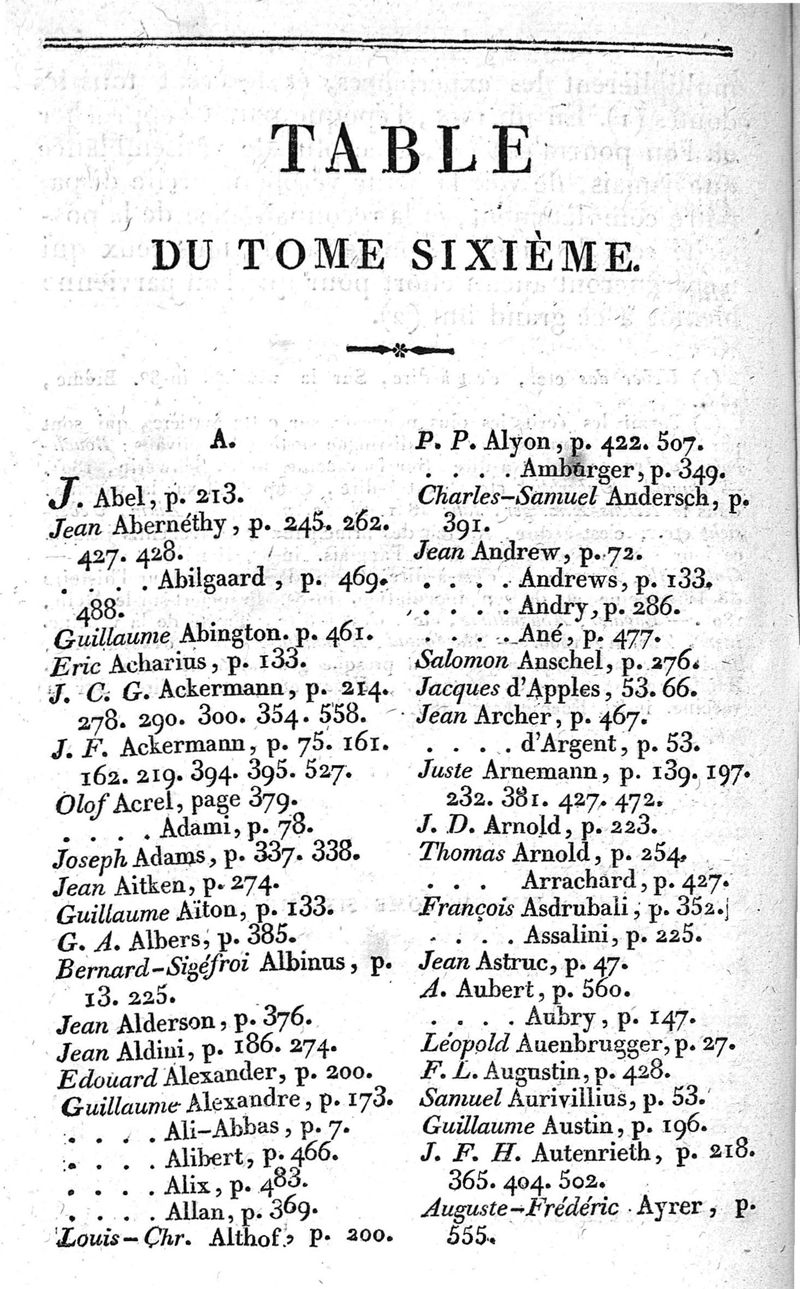 TABLE
DU TOME SIXIÈME.
A.
J. Abel, p. 213.
Jean Abernéthy, p. 245. 262.
427. 428.
. . . . Abilgaard, p. 469.
488.
Guillaume Abington. p. 461.
Eric Acharius, p. 133.
J. C. G. Ackermann, p. 214.
278. 290. 300. 354. 558.
J. F. Ackermann, p. 75. 161.
162. 219. 394. 395. 527.
Olof Acrel, page 379.
. . . . Adami, p. 78.
Joseph Adams, p. 337. 338.
Jean Aitken, p. 274.
Guillaume Aïton, p. 133.
G. A. Albers, p. 385.
Bernard-Sigéfroi Albinus, p.
13. 225.
Jean Alderson, p. 376.
Jean Aldini, p. 186. 274.
Edouard Alexander, p. 200.
Guillaume Alexandre, p. 173.
. . . . Ali-Abbas, p. 7.
. . . . Alibert, p. 466.
. . . . Alix, p. 483.
. . . . Allan, p. 369.
Louis-Chr. Althof, p. 200.
P. P. Alyon, p. 422. 507.
. . . . Amburger, p. 349.
Charles-Samuel Andersch, p.
391.
Jean Andrew, p. 72.
. . . . Andrews, p. 133.
. . . . Andry, p. 286.
. . . . Ané, p. 477.
Salomon Anschel, p. 276.
Jacques d'Apples, 53. 66.
Jean Archer, p. 467.
. . . . d'Argent, p. 53.
Juste Arnemann, p. 139. 197.
232. 381. 427. 472.
J. D. Arnold, p. 223.
Thomas Arnold, p. 254.
. . . Arrachard, p. 427.
François Asdrubali, p. 352.
. . . . Assalini, p. 225.
Jean Astruc, p. 47.
A. Aubert, p. 560.
. . . . Aubry, p. 147.
Léopold Auenbrugger, p. 27.
F. L. Augustin, p. 428.
Samuel Aurivillius, p. 53.
Guillaume Austin, p. 196.
J. F. H. Autenrieth, p. 218.
365. 404. 502.
Auguste-Frédéric Ayrer, p.
555.